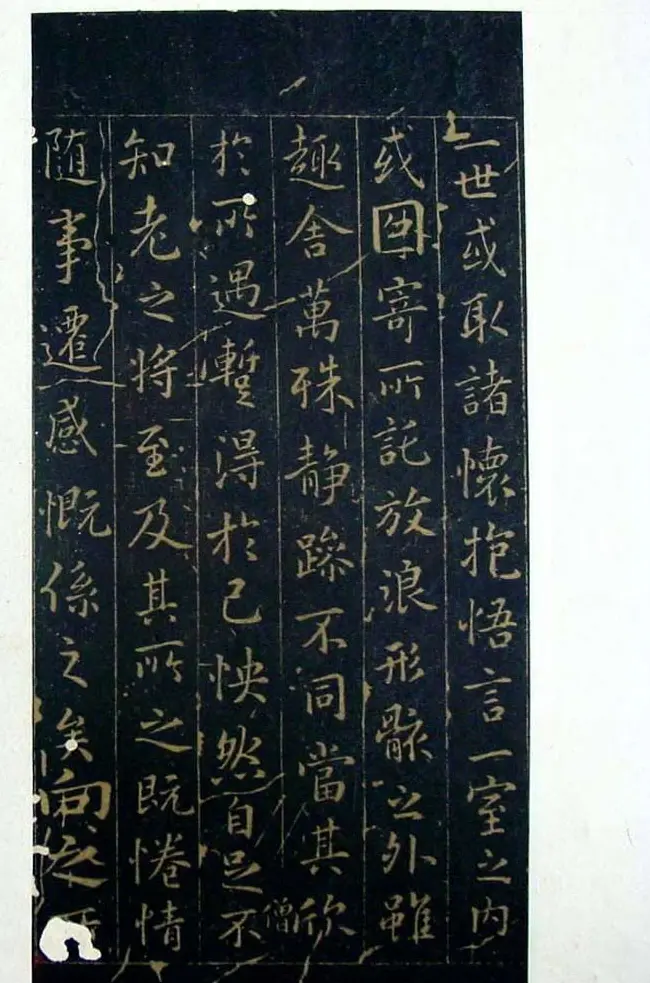 一世或取諸懷抱悟言一室之内
或因寄所託放浪形骸之外雖
趣舍萬殊静躁不同當其欣
僧
於所遇蹔得於己怏然自足不
知老之將至及其所之既惓情
随事遷感慨係之矣向之